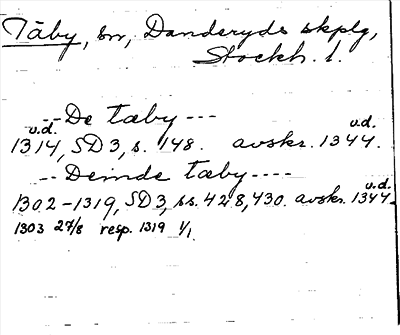 Täby, sn, Danderyds skplg,
Stockh. l.
--De tæby---
u.d. u.d.
1314, SD3, s. 148. avskr. 1344.
--Deinde tæby----
u.d.
1302-1319, SD3, ss. 428,430. avskr. 1344.
1303 27/8 resp. 1319 1/1.